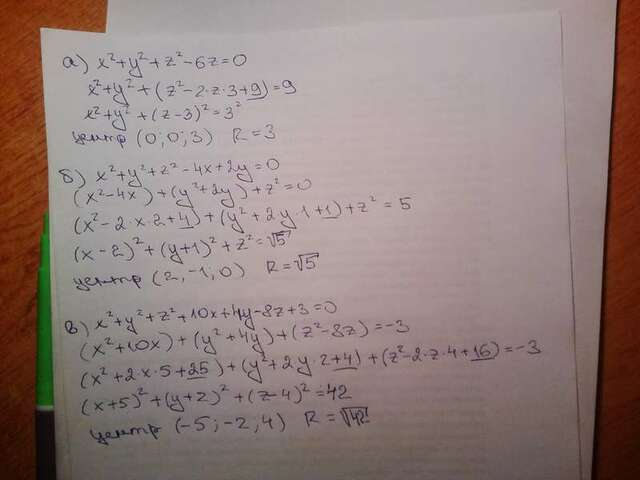 а) x²+y²+z²-6z=0
x²+y²+(z²-2·z·3+9)=9
x²+y²+(z-3)²=3²
центр (0;0;3) R=3
б) x²+y²+z²-4x+2y=0
(x²-4x)+(y²+2y)+z²=0
(x²-2·x·2+4)+(y²+2y·1+1)+z²=5
(x-2)²+(y+1)²+z²=√5²
центр (2,-1,0) R=√5
в) x²+y²+z²+10x+4y-8z+3=0
(x²+10x)+(y²+4y)+(z²-8z)=-3
(x²+2x·5+25)+(y²+2y·2+4)+(z²-2·z·4+16)=-3
(x+5)²+(y+2)²+(z-4)²=42
центр (-5;-2;4) R=√42